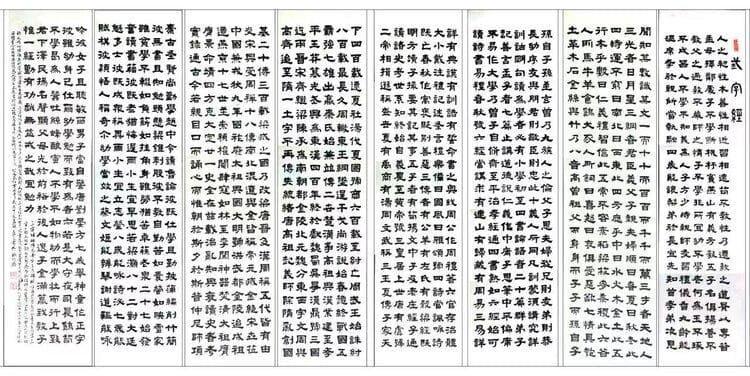 三字經
人之初性本善性相近習相遠苟不教性乃遷教之道貴以專昔
孟母擇鄰處子不學斷機杼竇燕山有義方教五子名俱揚養不
教父之過教不嚴師之惰子不學非所宜幼不學老何為玉不琢
不成器人不學不知義為人子方少時親師友習禮儀香九齡能
溫席孝於親所當執融四歲能讓梨弟於長宜先知首孝弟次見
聞知某數識某文一而十十而百百而千千而萬三才者天地人
三光者日月星三綱者君臣義父子親夫婦順曰春夏曰秋冬此
四時運不窮曰南北曰西東此四方應乎中曰水火木金土此五
行本乎數曰仁義禮智信此五常不容紊稻粱菽麥黍稷此六穀
人所食馬牛羊雞犬豕此六畜人所飼曰喜怒曰哀懼愛惡欲七情具匏
土革木石金絲與竹乃八音高曾祖父而身身而子子而孫自子
孫自子孫至玄曾乃九族人之倫父子恩夫婦從兄則友弟則恭
長幼序友與朋君則敬臣則忠此十義人所同凡訓蒙須講究詳
訓詁明句讀為學者必有初小學終至四書論語者二十篇群弟子
記善言孟子者七篇止講道德說仁義作中庸子思筆中不偏庸
不易作大學乃曾子自修齊至平治孝經通四書熟如六經始可
讀詩書易禮春秋號六經當講求有連山有歸藏有周易三易詳
有典謨有訓誥有誓命書之奧我周公作周禮著六官存治體
大小戴註禮記述聖言禮樂備曰國風曰雅頌號四詩當諷詠詩
既亡春秋作寓褒貶別善惡三傳者有公羊有左氏有穀梁經既
明方讀子撮其要記其事五子者有荀揚文中子及老莊經子通
讀諸史考世系知終始自羲農至黃帝號三皇居上世唐有虞號
二帝相揖遜稱盛世夏有禹商有湯周文武稱三王夏傳子家天
下四百載遷夏社湯伐夏國號商六百載至紂亡周武王始誅紂
八百載最長久周轍東王綱墜逞干戈尚游說始春秋終戰國五
霸強七雄出嬴秦氏始兼并傳二世楚漢爭高祖興漢業建至孝
平王莽篡光武興為東漢四百年終於獻魏蜀吳爭漢鼎號三國
迄兩晉宋齊繼梁陳承為南朝都金陵北元魏分東西宇文周與
高齊迨至隋一土宇不再傳失統緒唐高祖起義師除隋亂創國
基二十傳三百載梁滅之國乃改梁唐晉及漢周稱五代皆有由
炎宋興受周禪十八傳南北混遼與金皆稱帝元滅金絕宋世莅
中國兼戎狄九十年國祚廢太祖興國大明號洪武都金陵迨成祖
遷燕京十七世至崇禎權閹肆寇如林李闖出神器焚清世祖
膺景命靖四方克大定
實錄通古今若親目口而誦心而惟朝於斯夕於斯昔仲尼師項
橐古聖賢尚勤學趙中令讀魯論彼既仕學且勤披蒲編削竹簡
雖貧學不輟如負薪如掛角身雖勞猶苦卓蘇老泉二十七始發
憤讀書籍彼既老猶悔遲爾小生宜早思若梁灝八十二對大廷
魁多士彼既成眾稱異爾小生宜立志瑩八歲能詠詩泌七歲能
賦棋彼穎悟人稱奇爾幼學當效之蔡文姬能辨琴謝道韞能
吟彼女子且聰敏爾男子當自警唐劉晏方七歲舉神童作正字
彼雖幼身已仕爾幼學勉而致有為者亦若是犬守夜雞司晨苟
不學曷為人蠶吐絲蜂釀蜜人不學不如物幼而學壯而行上致
君下澤民揚名聲顯父母光於前裕於後人遺子金滿籯我教子
惟一經勤有功戲無益戒之哉宜勉力